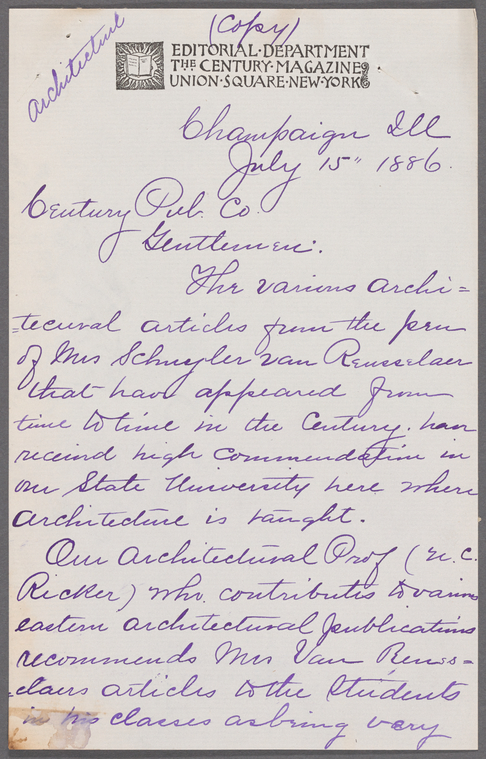 (Copy)
Architecture
EDITORIAL·DEPARTMENT
THE CENTURY·MAGAZINE
UNION·SQUARE·NEW·YORK
Champaign Ill
July 15" 1886.
Century Pub. Co.
Gentlemen:
The various archi=
=tecural articles from the pen
of Mrs Schuyler Van Rensselaer
that have appeared from
time to time in the Century. have
received high commendation in
our State University here where
architecture is taught.
Our Architectural Prof (N. C.
Ricker) who contributes to various
eastern architectural publications
recommends Mrs Van Renss=
=elaers articles to the Students
in his classes as being very